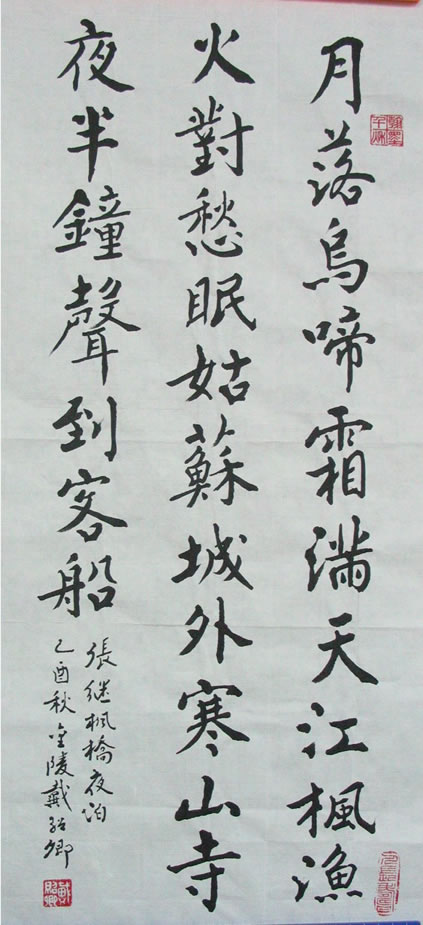 月落烏啼霜满天江楓漁
火對愁眠姑蘇城外寒山寺
夜半鐘聲到客船
張继枫橋夜泊
乙酉秋金陵戴紹卿